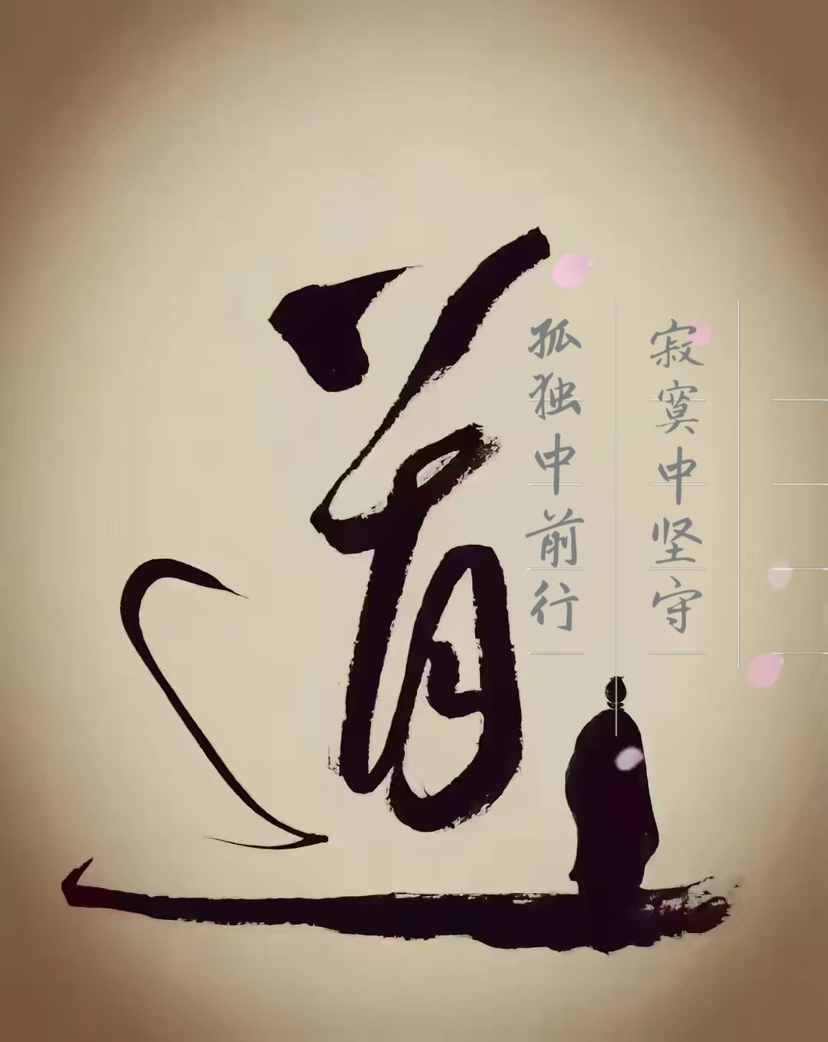 道
寂寞中坚守
孤独中前行